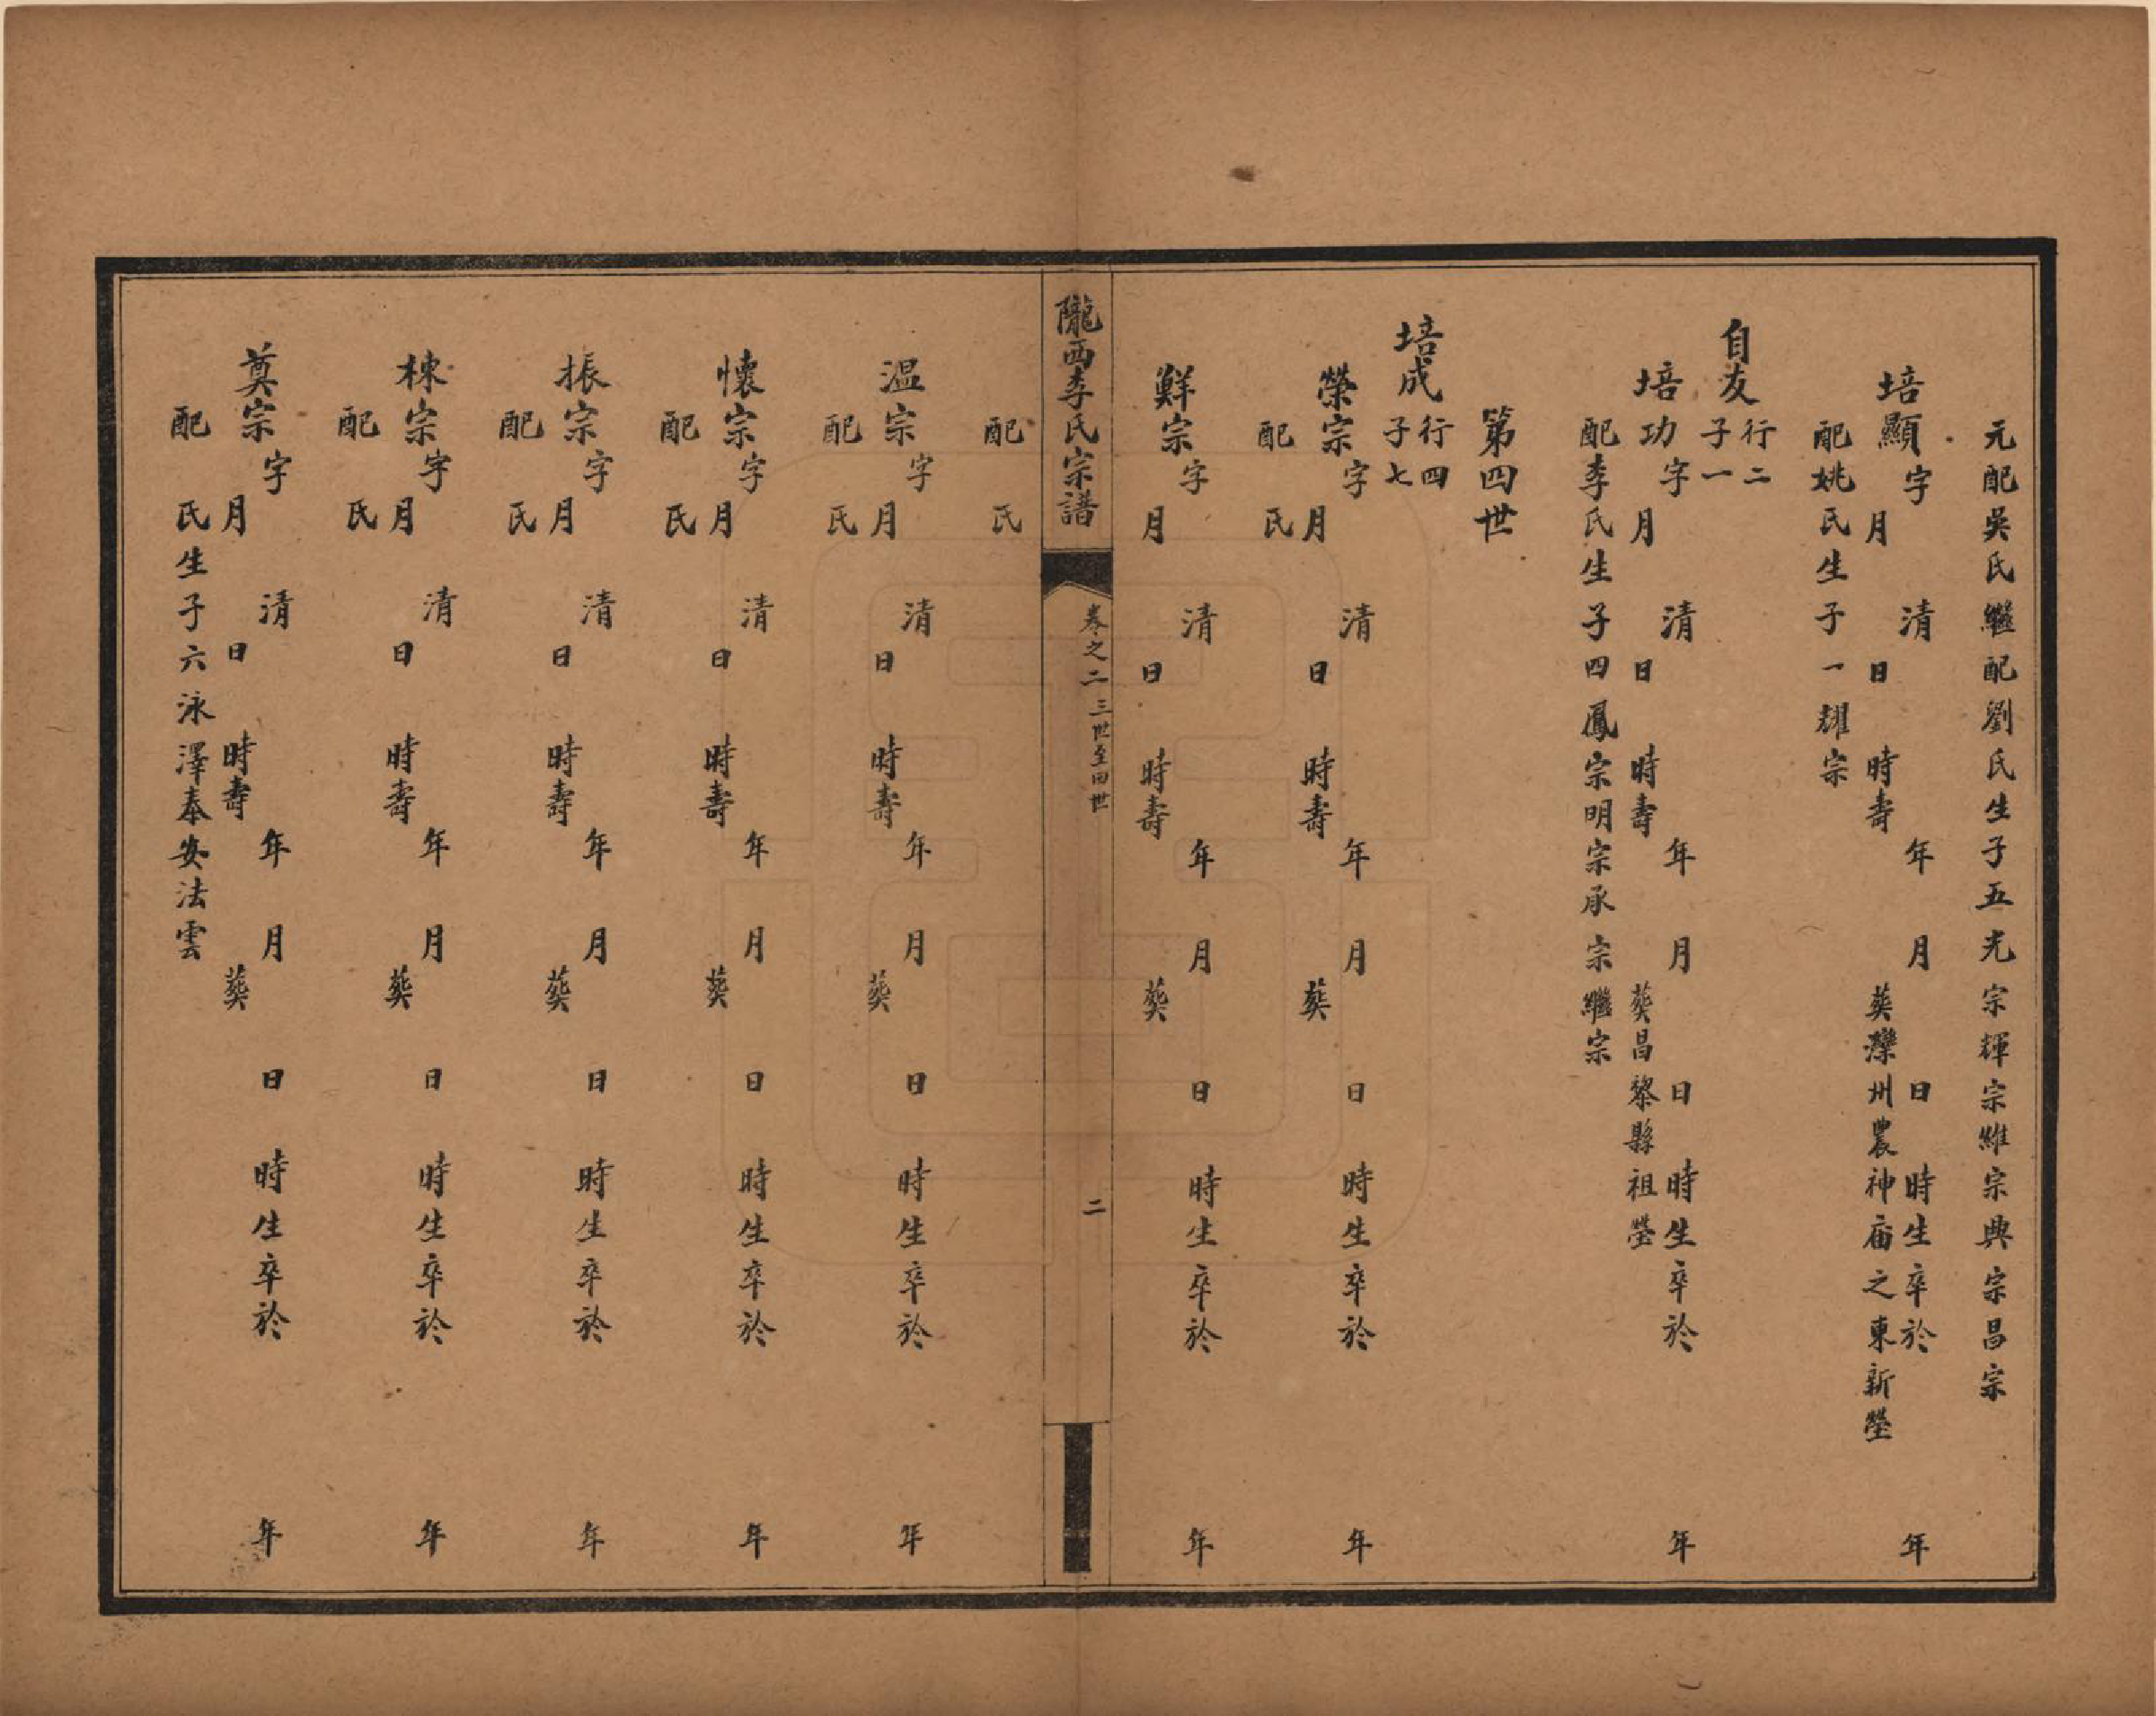 元配吳氏繼配劉氏生子五光宗輝宗維宗典宗昌宗
培顯字　清　年　月　日　時生卒於　年
月　日　時壽　葬灤州農神庙之東新塋
配姚氏生子一耀宗
自友行二
子一
培功字　清　年　月　日　時生卒於　年
月　日　時壽　葬昌黎縣祖塋
配李氏生子四鳳宗明宗承宗繼宗
第四世
培成行四
子七
榮宗字　清　年　月　日　時生卒於　年
月　日　時壽　葬
配　氏
鮮宗字　清　年　月　日　時生卒於　年
月　日　時壽　葬
隴西李氏宗譜
卷之二　三世至四世
二
配　氏
温宗字　清　年　月　日　時生卒於　年
月　日　時壽　葬
配　氏
懷宗字　清　年　月　日　時生卒於　年
月　日　時壽　葬
配　氏
振宗字　清　年　月　日　時生卒於　年
月　日　時壽　葬
配　氏
棟宗字　清　年　月　日　時生卒於　年
月　日　時壽　葬
配　氏
奠宗字　清　年　月　日　時生卒於　年
月　日　時壽　葬
配　氏生子六泳澤奉安法雲